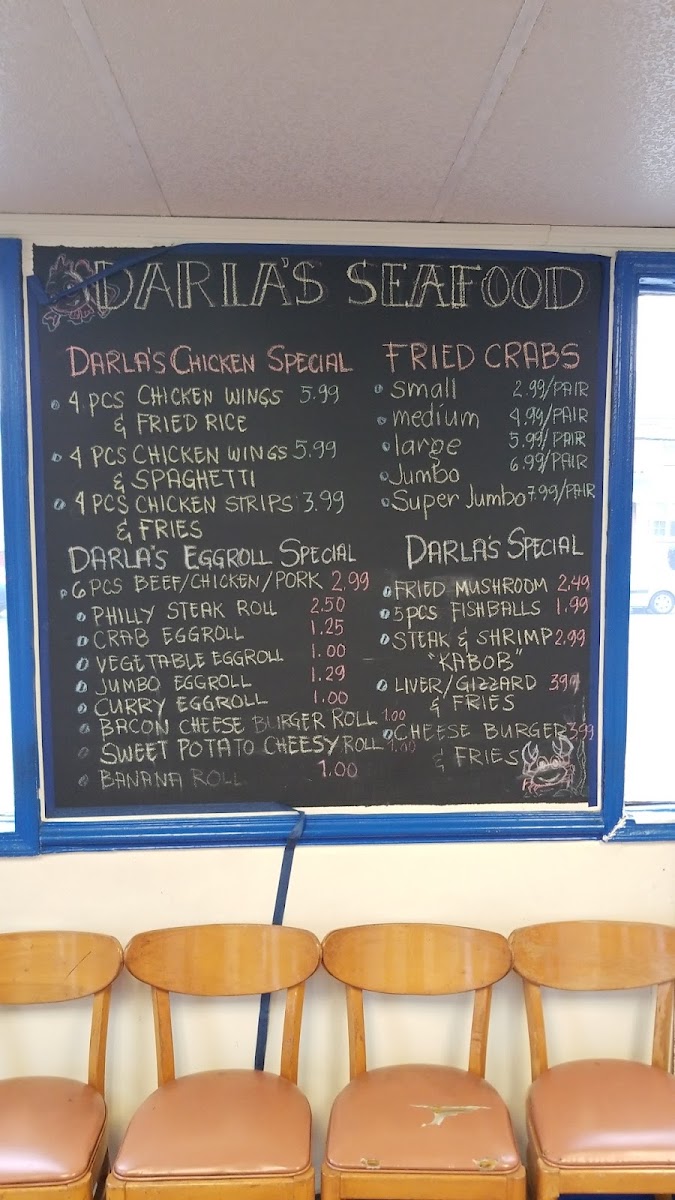 DARLA'S SEAFOOD
DARLA'S CHICKEN SPECIAL
4 PCS CHICKEN WINGS 5.99
& FRIED RICE
4 PCS CHICKEN WINGS 5.99
& SPAGHETTI
4 PCS CHICKEN STRIPS 3.99
& FRIES
DARLA'S EGGROLL SPECIAL
6 PCS BEEF/CHICKEN/PORK 2.99
PHILLY STEAK ROLL 2.50
CRAB EGGROLL 1.25
VEGETABLE EGGROLL 1.00
JUMBO EGGROLL 1.29
CURRY EGGROLL 1.00
BACON CHEESE BURGER ROLL 1.00
SWEET POTATO CHEESY ROLL 1.00
BANANA ROLL 1.00
FRIED CRABS
small 2.99/PAIR
medium 4.99/PAIR
large 5.99/PAIR
Jumbo 6.99/PAIR
Super Jumbo 7.99/PAIR
DARLA'S SPECIAL
FRIED MUSHROOM 2.49
5 PCS FISHBALLS 1.99
STEAK & SHRIMP 2.99
"KABOB"
LIVER/GIZZARD 3.99
& FRIES
CHEESE BURGER 3.99
& FRIES